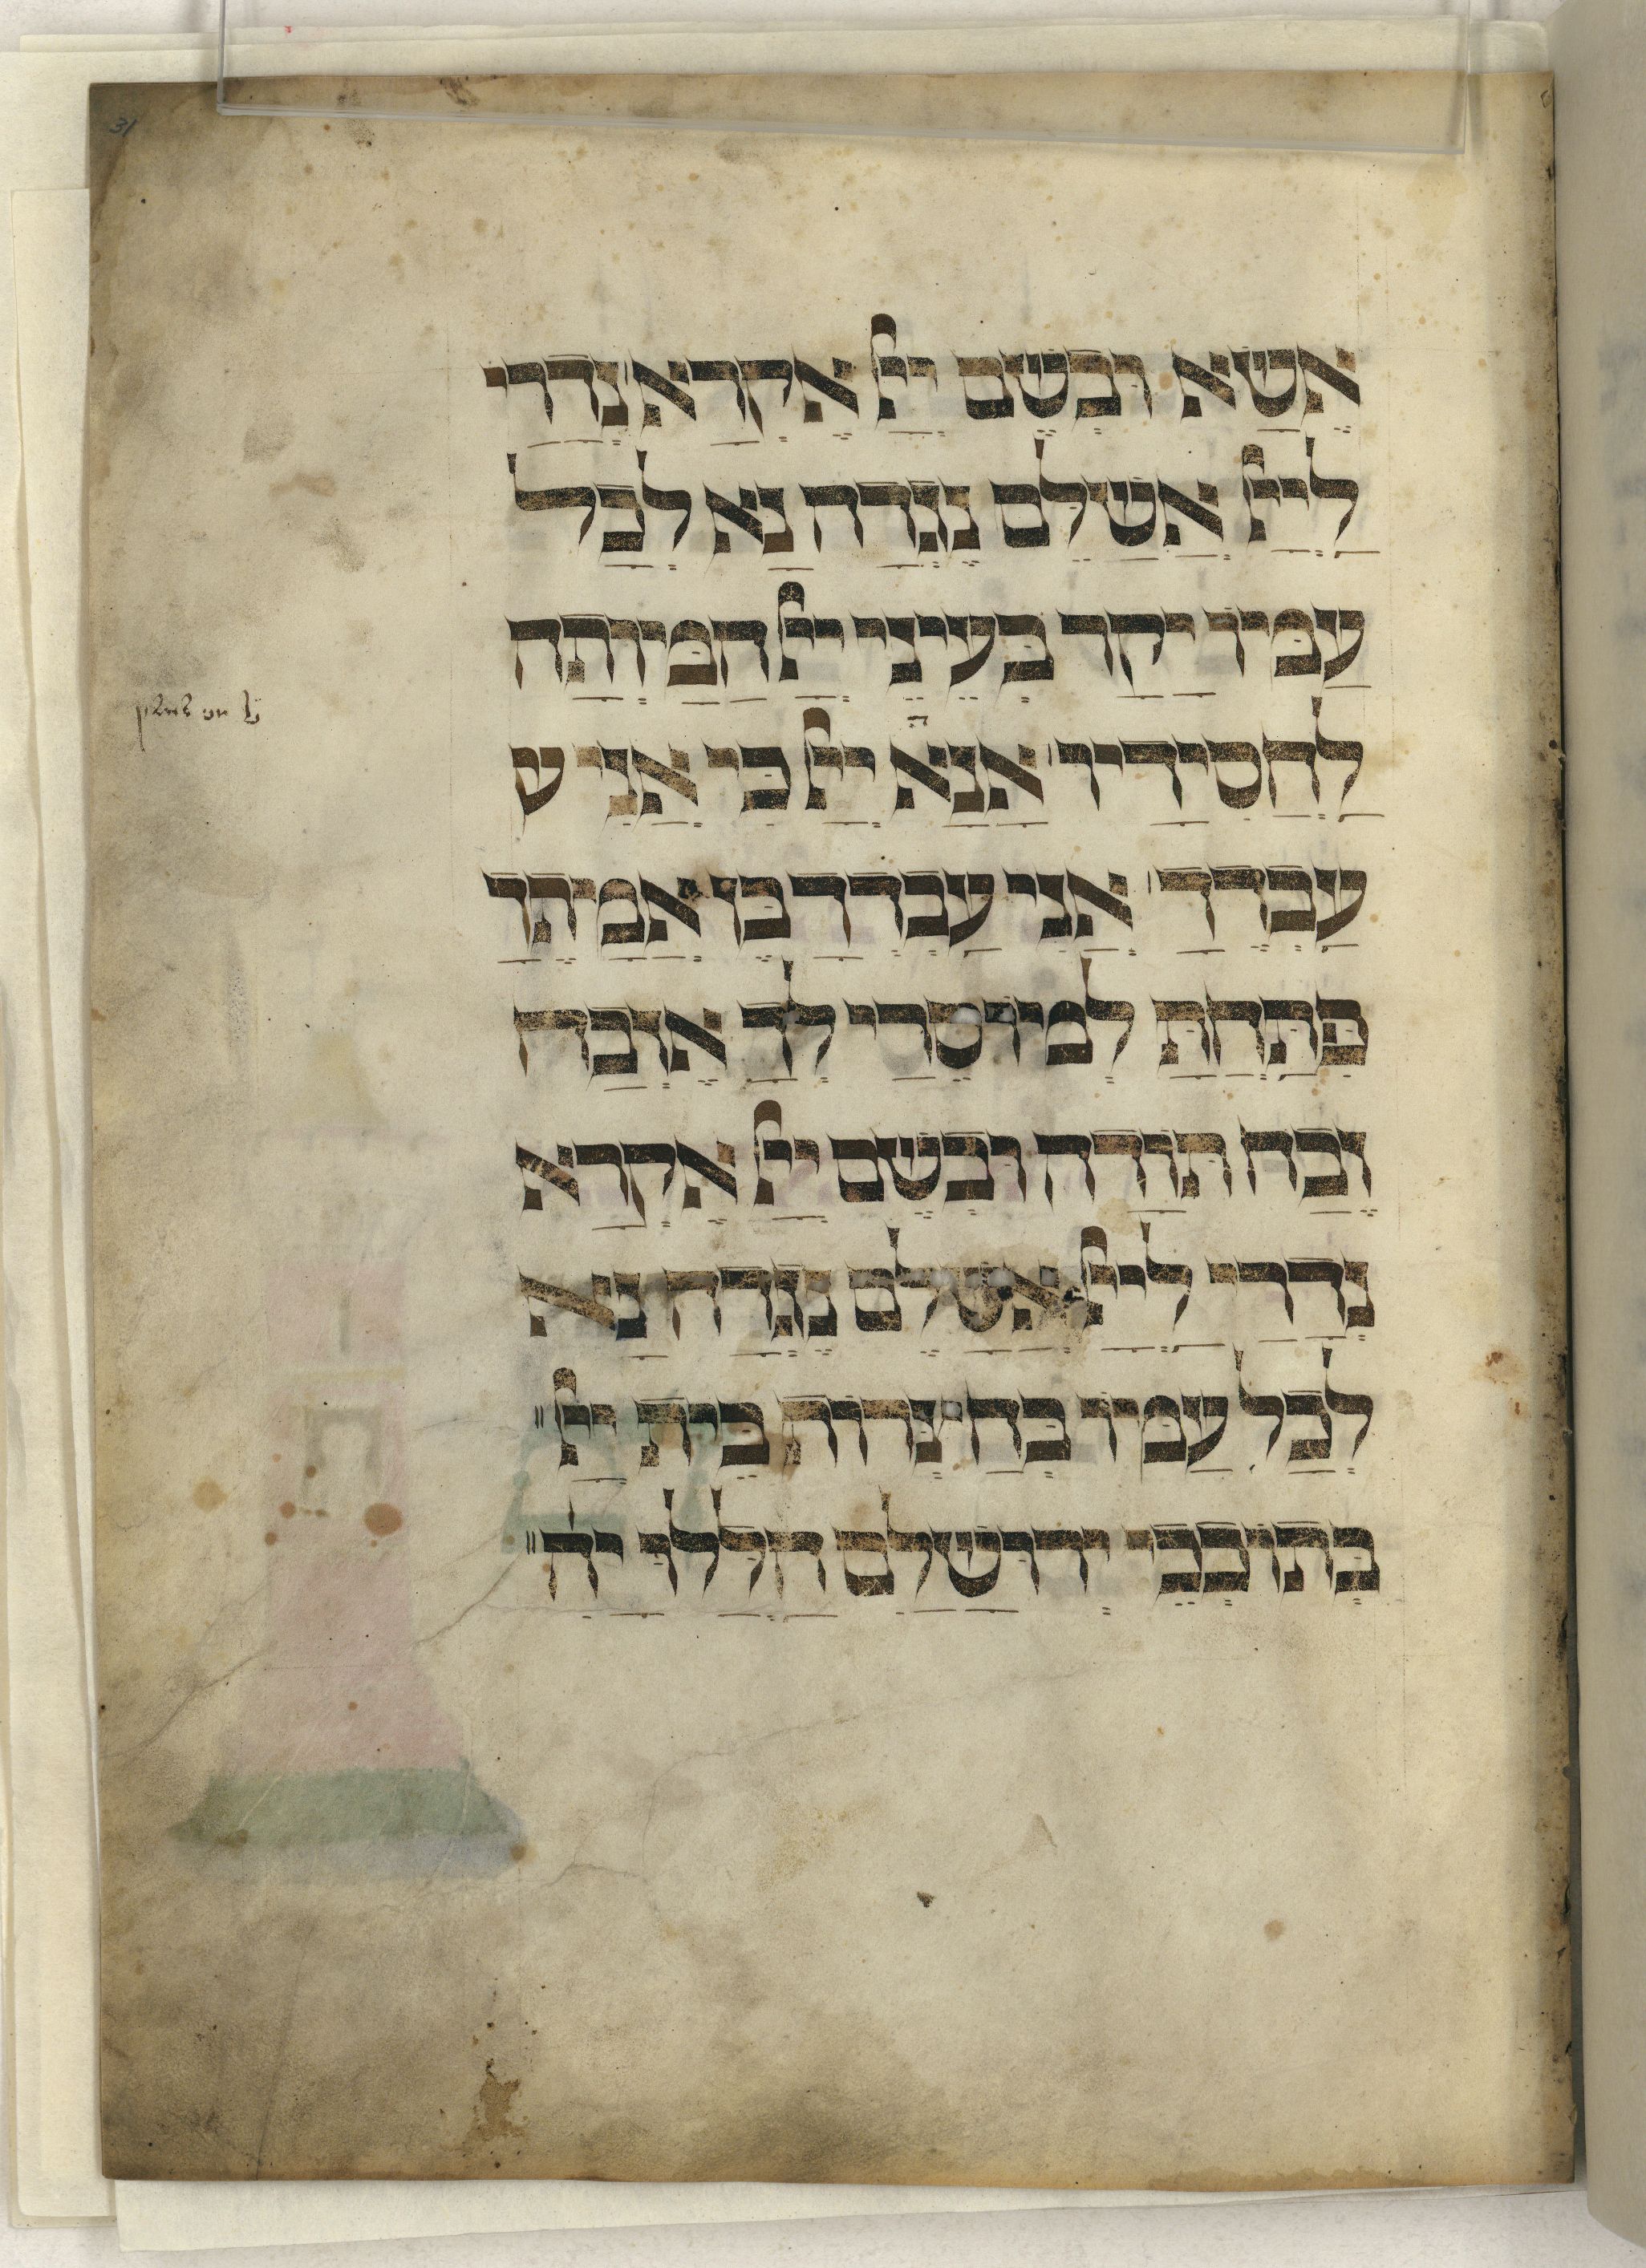 31
אֶשָּׂא וּבְשֵׁם יְיָ אֶקְרָא נְדָרַי
לַיְיָ אֲשַׁלֵּם נֶגְדָה נָּא לְכָל
עַמּוֹ יָקָר בְּעֵינֵי יְיָ הַמָּוְתָה
לַחֲסִידָיו אָנָּא יְיָ כִּי אֲנִי ע
עַבְדֶּךָ אֲנִי עַבְדְּךָ בֶּן אֲמָתֶךָ
פִּתַּחְתָּ לְמוֹסֵרָי לְךָ אֶזְבַּח
זֶבַח תּוֹדָה וּבְשֵׁם יְיָ אֶקְרָא
נְדָרַי לַיְיָ אֲשַׁלֵּם נֶגְדָה נָּא
לְכָל עַמּוֹ בְּחַצְרוֹת בֵּית יְיָ׃
בְּתוֹכֵכִי יְרוּשָׁלִַם הַלְלוּ יָהּ׃